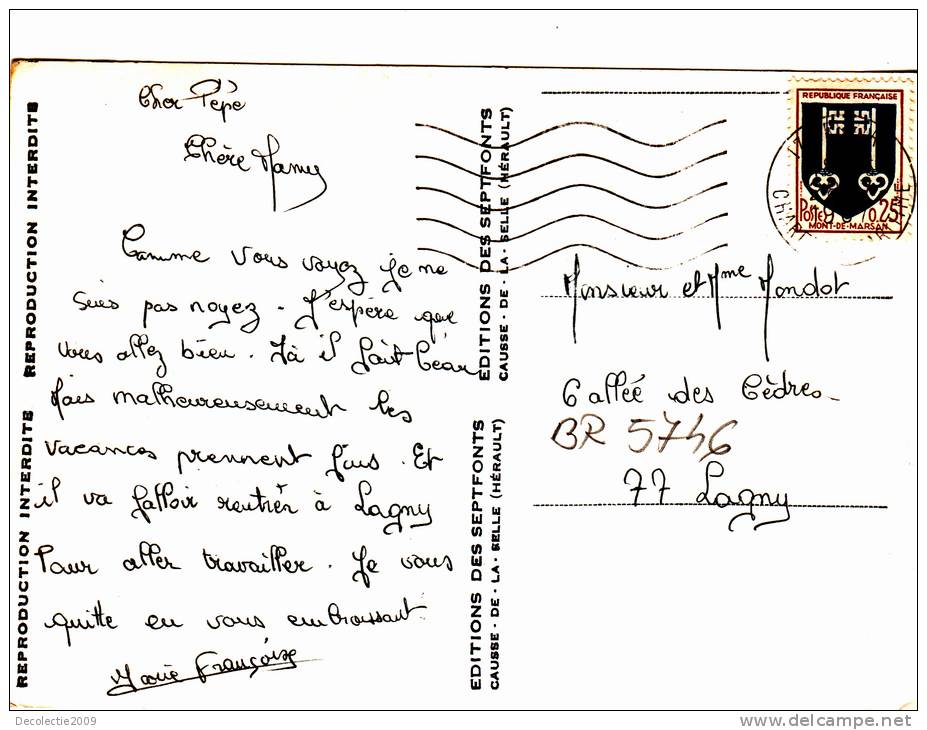 Cher Pépé
Chère Mamy
Comme vous voyez je ne
suis pas noyez. J'espère que
vous allez bien. Là il fait beau
Mais malheureusement les
vacances prennent fins. Et
il va falloir rentrer à Lagny
Pour aller travailler. Je vous
quitte en vous embrassant.
Marie Françoise
REPRODUCTION INTERDITE
REPRODUCTION INTERDITE
EDITIONS DES SEPTFONTS
CAUSSE - DE - LA - SELLE (HÉRAULT)
EDITIONS DES SEPTFONTS
CAUSSE - DE - LA - SELLE (HÉRAULT)
REPUBLIQUE FRANÇAISE
POSTE 0.25
MONT-DE-MARSAN
Monsieur et Mme Mondot
6 allée des Cèdres.
BR 5746
77 Lagny
Decolectie2009
www.delcampe.net